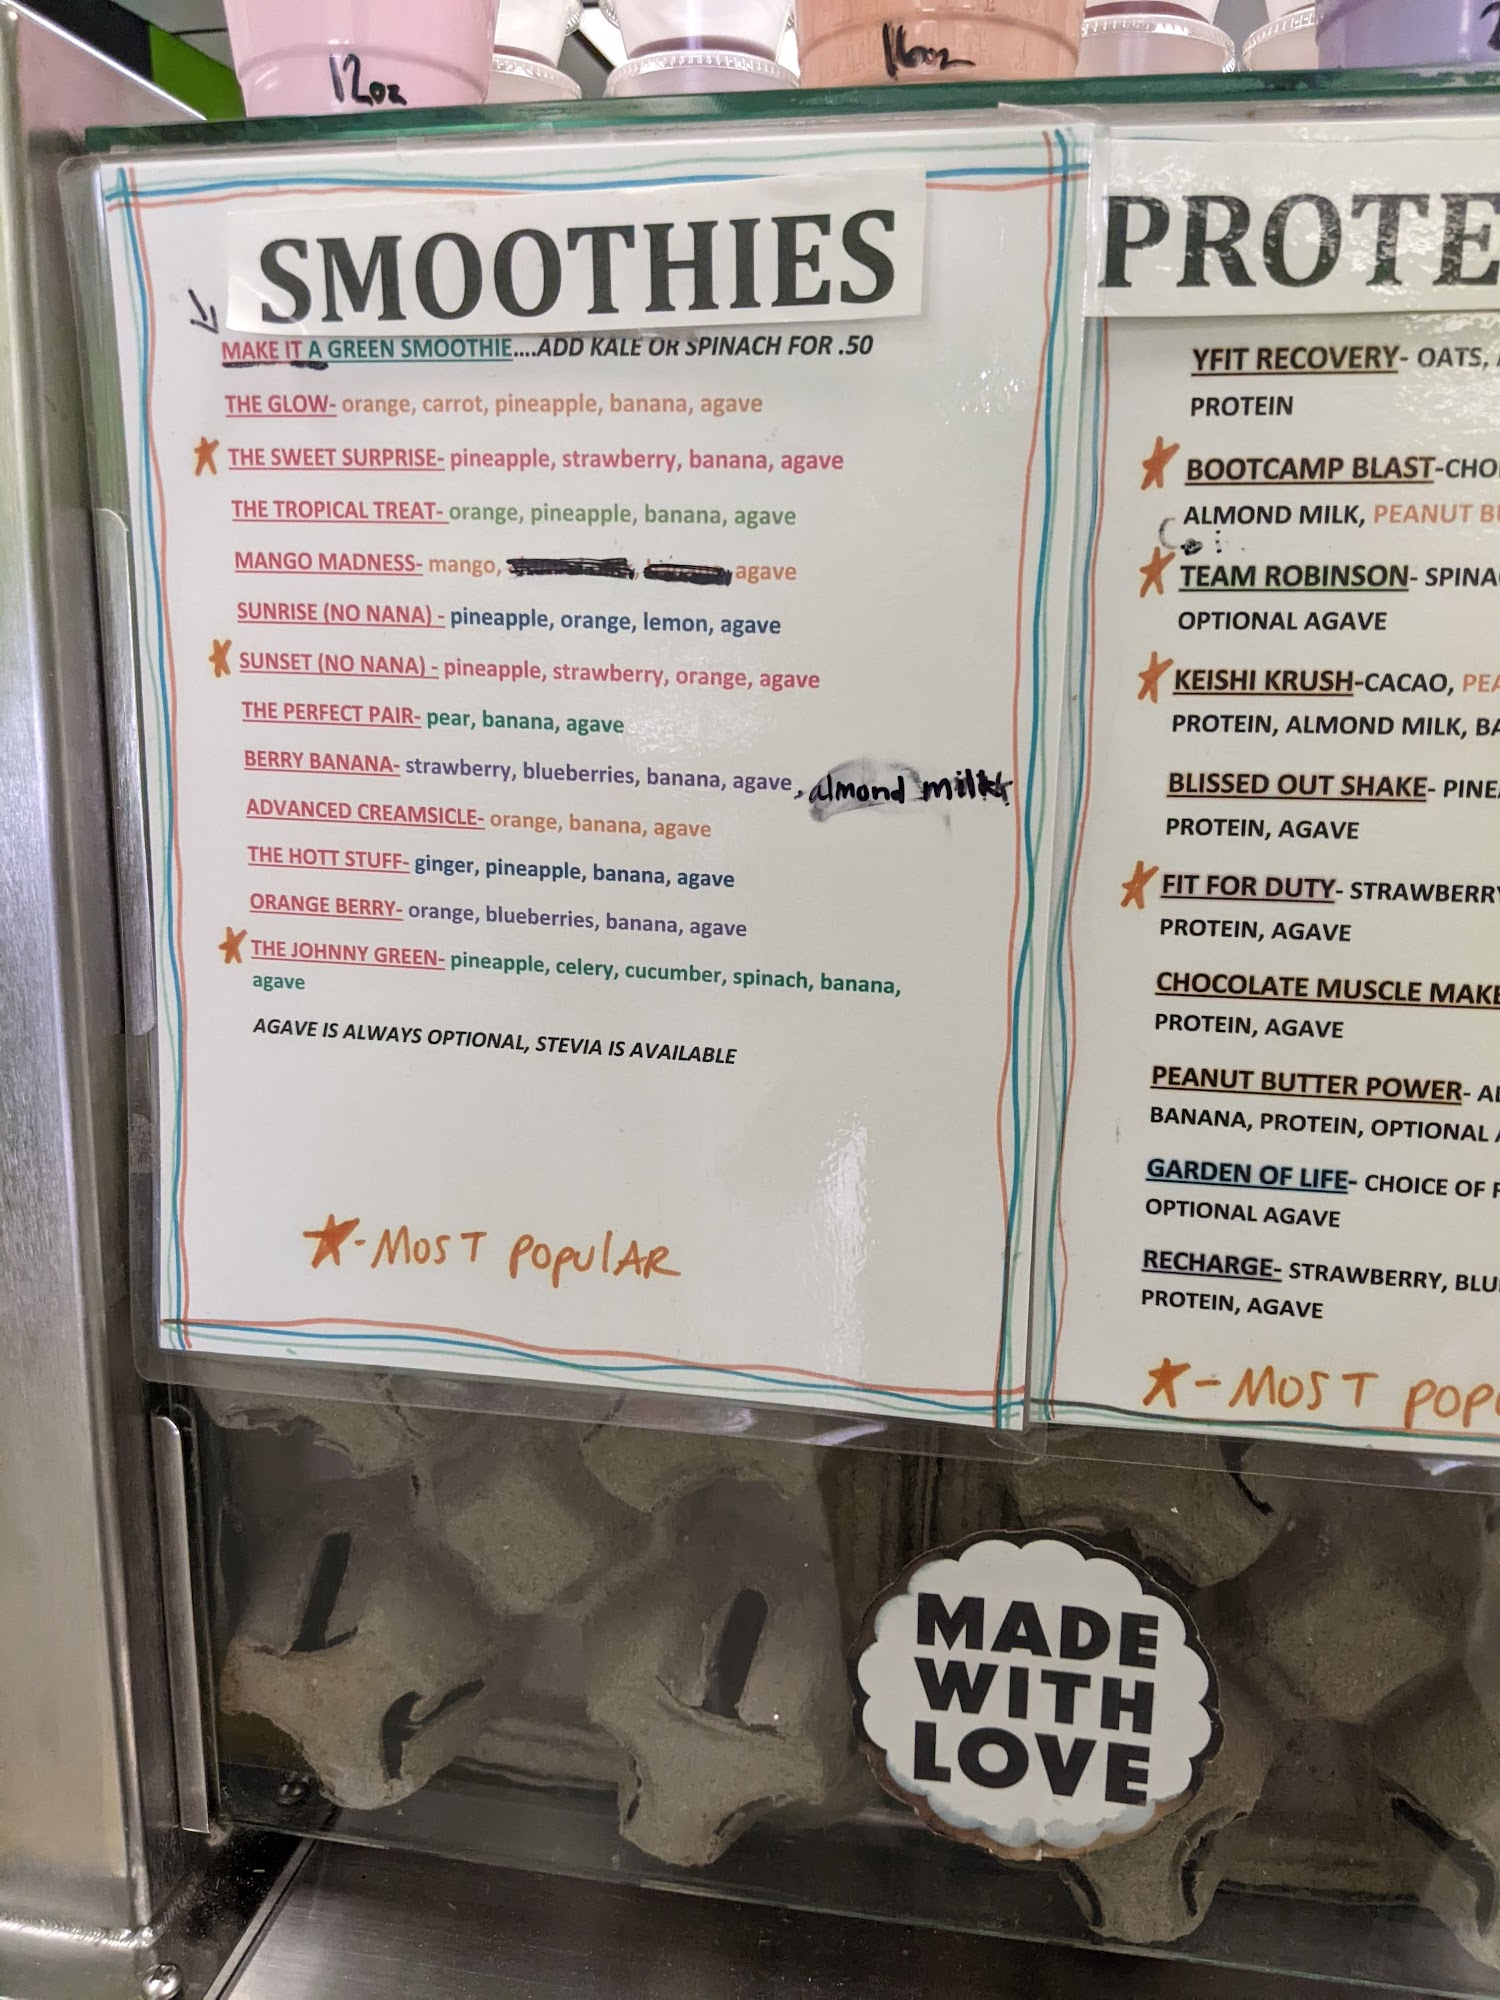 12oz
16oz
SMOOTHIES
MAKE IT A GREEN SMOOTHIE....ADD KALE OR SPINACH FOR .50
THE GLOW- orange, carrot, pineapple, banana, agave
THE SWEET SURPRISE- pineapple, strawberry, banana, agave
THE TROPICAL TREAT- orange, pineapple, banana, agave
MANGO MADNESS- mango, agave
SUNRISE (NO NANA) - pineapple, orange, lemon, agave
SUNSET (NO NANA) - pineapple, strawberry, orange, agave
THE PERFECT PAIR- pear, banana, agave
BERRY BANANA- strawberry, blueberries, banana, agave, almond milk
ADVANCED CREAMSICLE- orange, banana, agave
THE HOTT STUFF- ginger, pineapple, banana, agave
ORANGE BERRY- orange, blueberries, banana, agave
THE JOHNNY GREEN- pineapple, celery, cucumber, spinach, banana,
agave
AGAVE IS ALWAYS OPTIONAL, STEVIA IS AVAILABLE
- MOST POPULAR
PROTE
YFIT RECOVERY- OATS,
PROTEIN
BOOTCAMP BLAST-CHO
ALMOND MILK, PEANUT B
TEAM ROBINSON- SPINA
OPTIONAL AGAVE
KEISHI KRUSH-CACAO, PEA
PROTEIN, ALMOND MILK, BA
BLISSED OUT SHAKE- PINE
PROTEIN, AGAVE
FIT FOR DUTY- STRAWBERRY
PROTEIN, AGAVE
CHOCOLATE MUSCLE MAKE
PROTEIN, AGAVE
PEANUT BUTTER POWER- AL
BANANA, PROTEIN, OPTIONAL
GARDEN OF LIFE- CHOICE OF
OPTIONAL AGAVE
RECHARGE- STRAWBERRY, BLU
PROTEIN, AGAVE
- MOST POP
MADE
WITH
LOVE